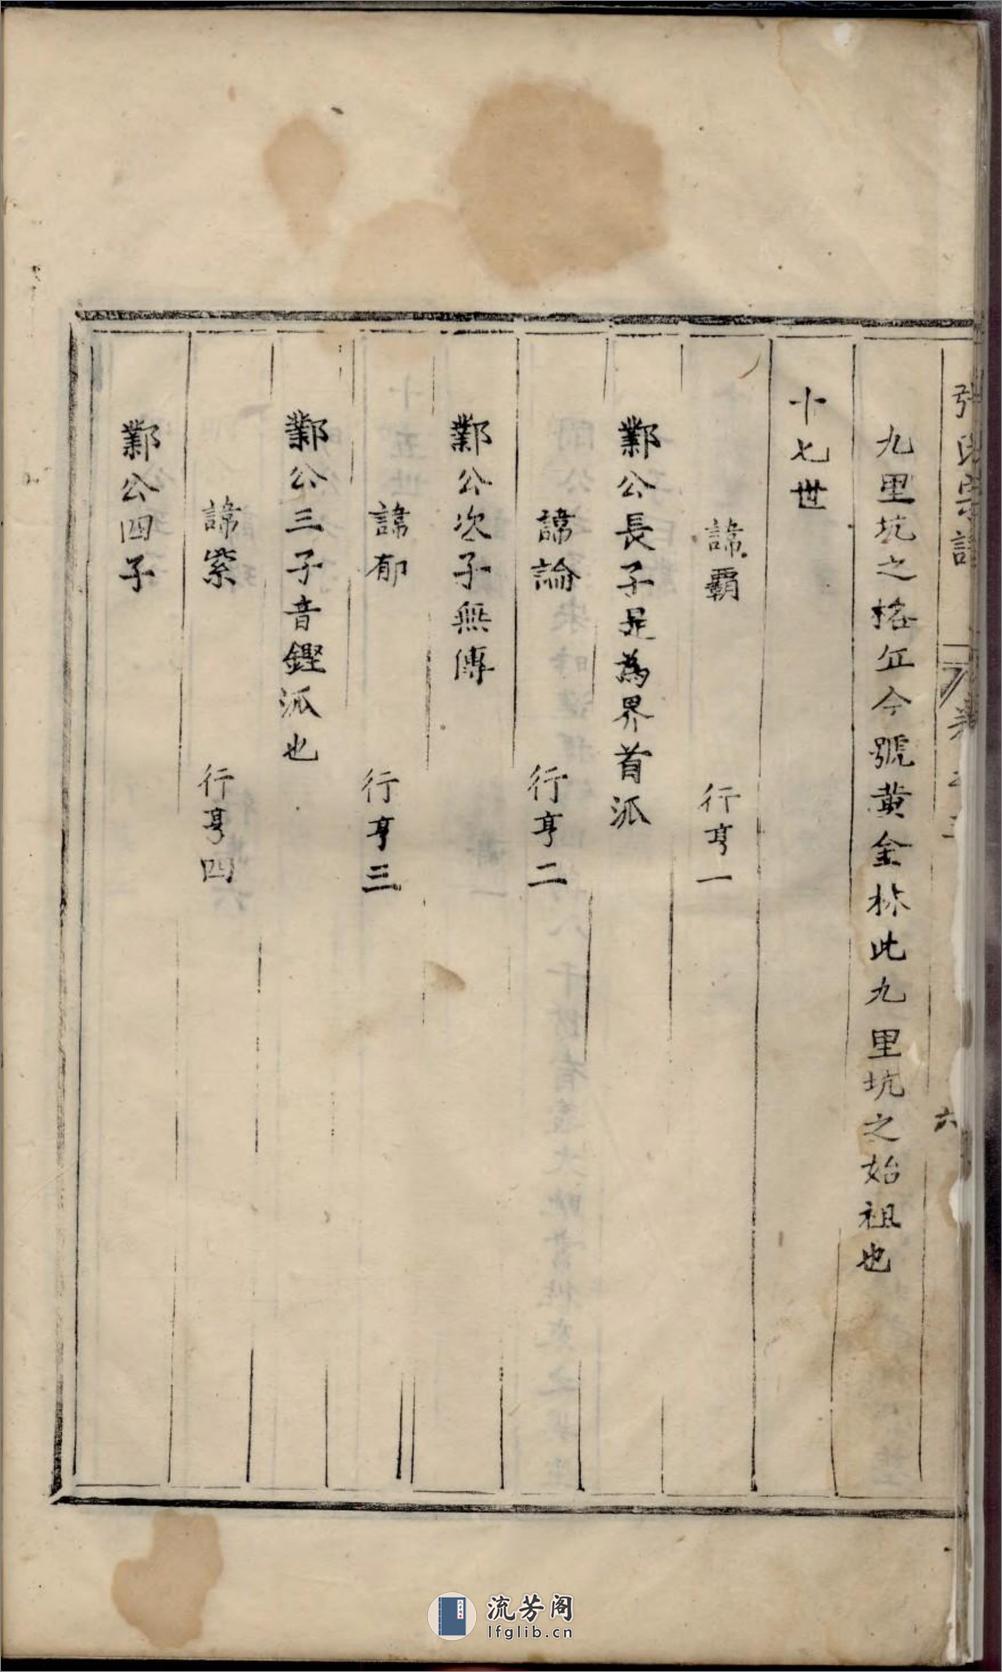 張氏宗譜
六
九里坑之格丘今號黃金林此九里坑之始祖也
十七世
諱霸 行亨一
鄴公長子是為界首派
諱論 行亨二
鄴公次子無傳
諱郁 行亨三
鄴公三子音鏗派也
諱縈 行亨四
鄴公四子
流芳阁
lfglib.cn